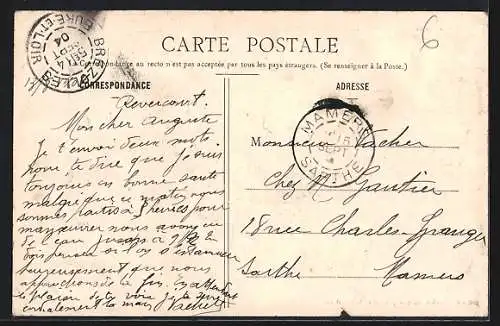 BRÉZOLLES
EURE-ET-LOIR
14
SEPT
04
CARTE POSTALE
Correspondance au recto n'est pas acceptée par tous les pays étrangers. (Se renseigner à la Poste.)
CORRESPONDANCE
ADRESSE
Revercourt.
Mon cher Auguste
Je t'envoi deux mots
pour te dire que je suis
toujours en bonne santé
malgré que ce matin nous
sommes partis à heures pour
manœuvrer nous avons eu
de l'eau jusqu'a
heureusement que nous
approchons de la fin. En attendant
le plaisir de te voir je te serre
cordialement la main Vacher
MAMERS
15
SEPT
SARTHE
Monsieur Vacher
Chez M. Gautier
18 rue Charles Granger
Sarthe Mamers
6